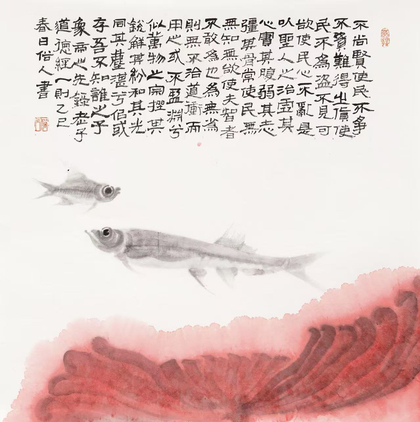 不尚賢使民不爭
不貴難得之貨使
民不為盜不見可
欲使民心不亂是
以聖人之治虛其
心實其腹弱其志
彊其骨常使民無
知無欲使夫智者
不敢為也為無為
則無不治道衝而
用之或不盈淵兮
似萬物之宗挫其
銳解其紛和其光
同其塵湛兮似或
存吾不知誰之子
象帝之先錄老子
道德經一則乙巳
春日俗人書